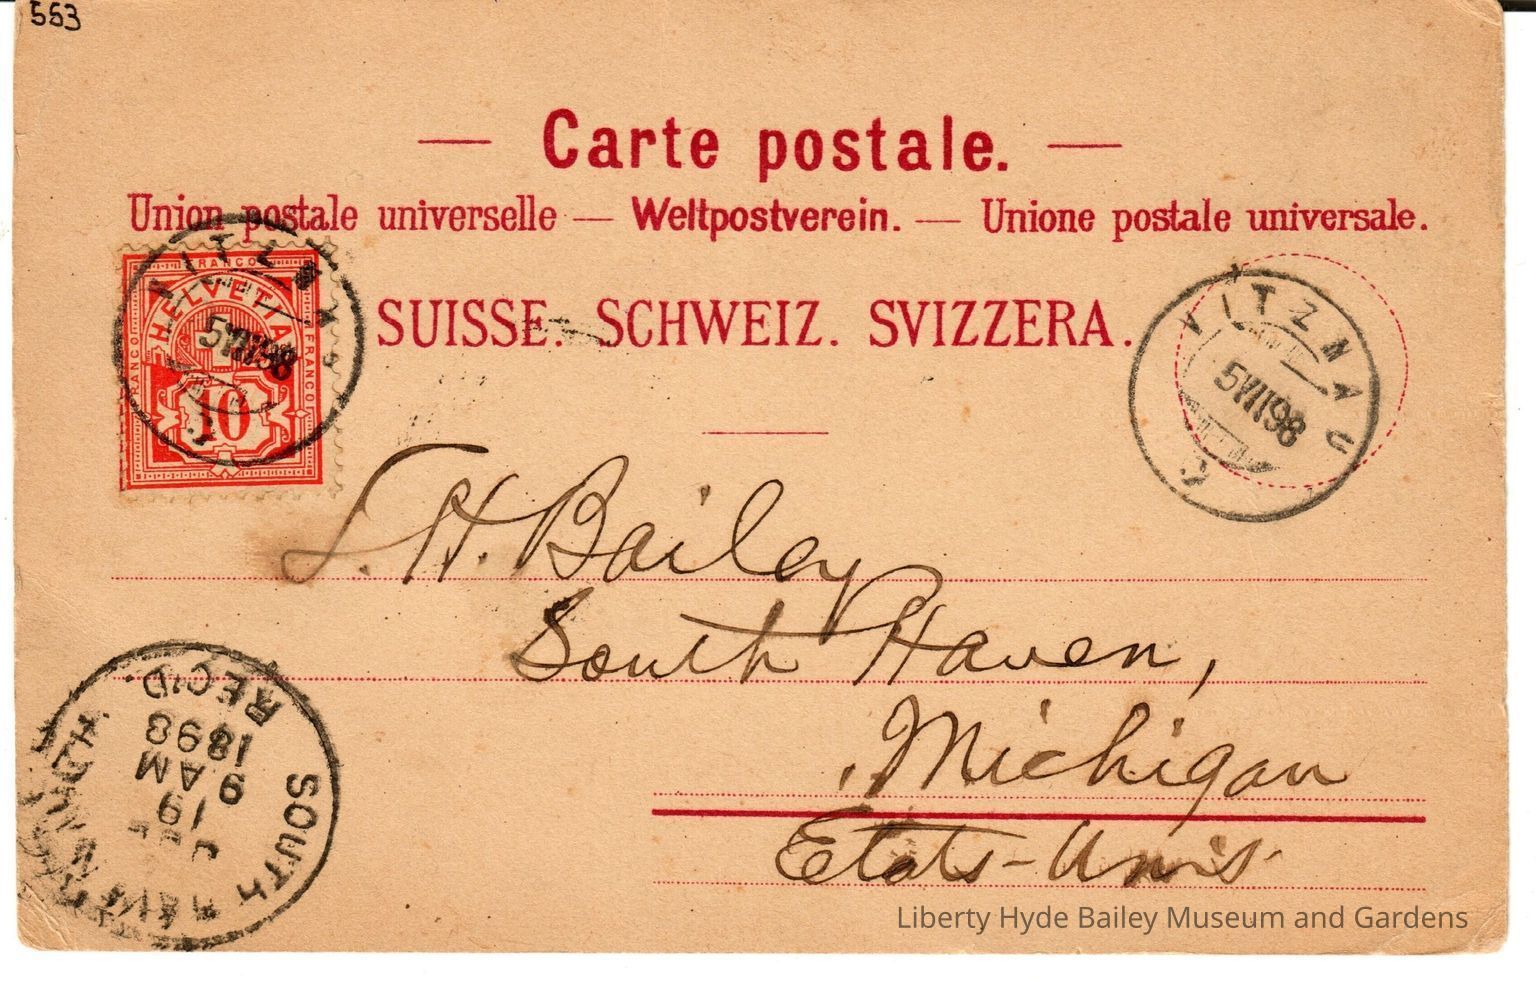 553
Carte postale.
Union postale universelle — Weltpostverein. — Unione postale universale.
SUISSE. SCHWEIZ. SVIZZERA.
FRANCO
FRANCO
FRANCO
HELVETIA
10
VITZNAU
5 VII 98
VITZNAU
5 VII 98
L. H. Bailey
South Haven,
Michigan
Etats-Unis
SOUTH HAVEN
MICH.
19
9 AM
1898
REC'D.
Liberty Hyde Bailey Museum and Gardens